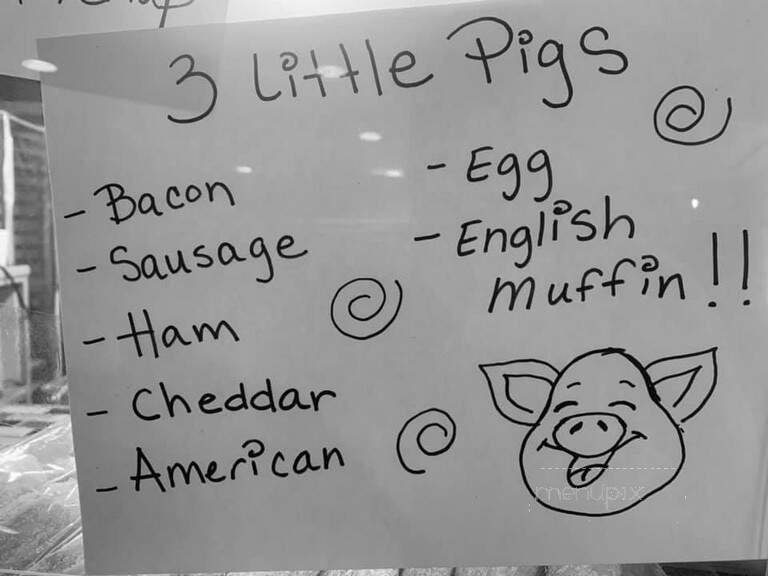 3 Little Pigs
- Bacon
- Sausage
- Ham
- Cheddar
- American
- Egg
- English
muffin!!
menupix